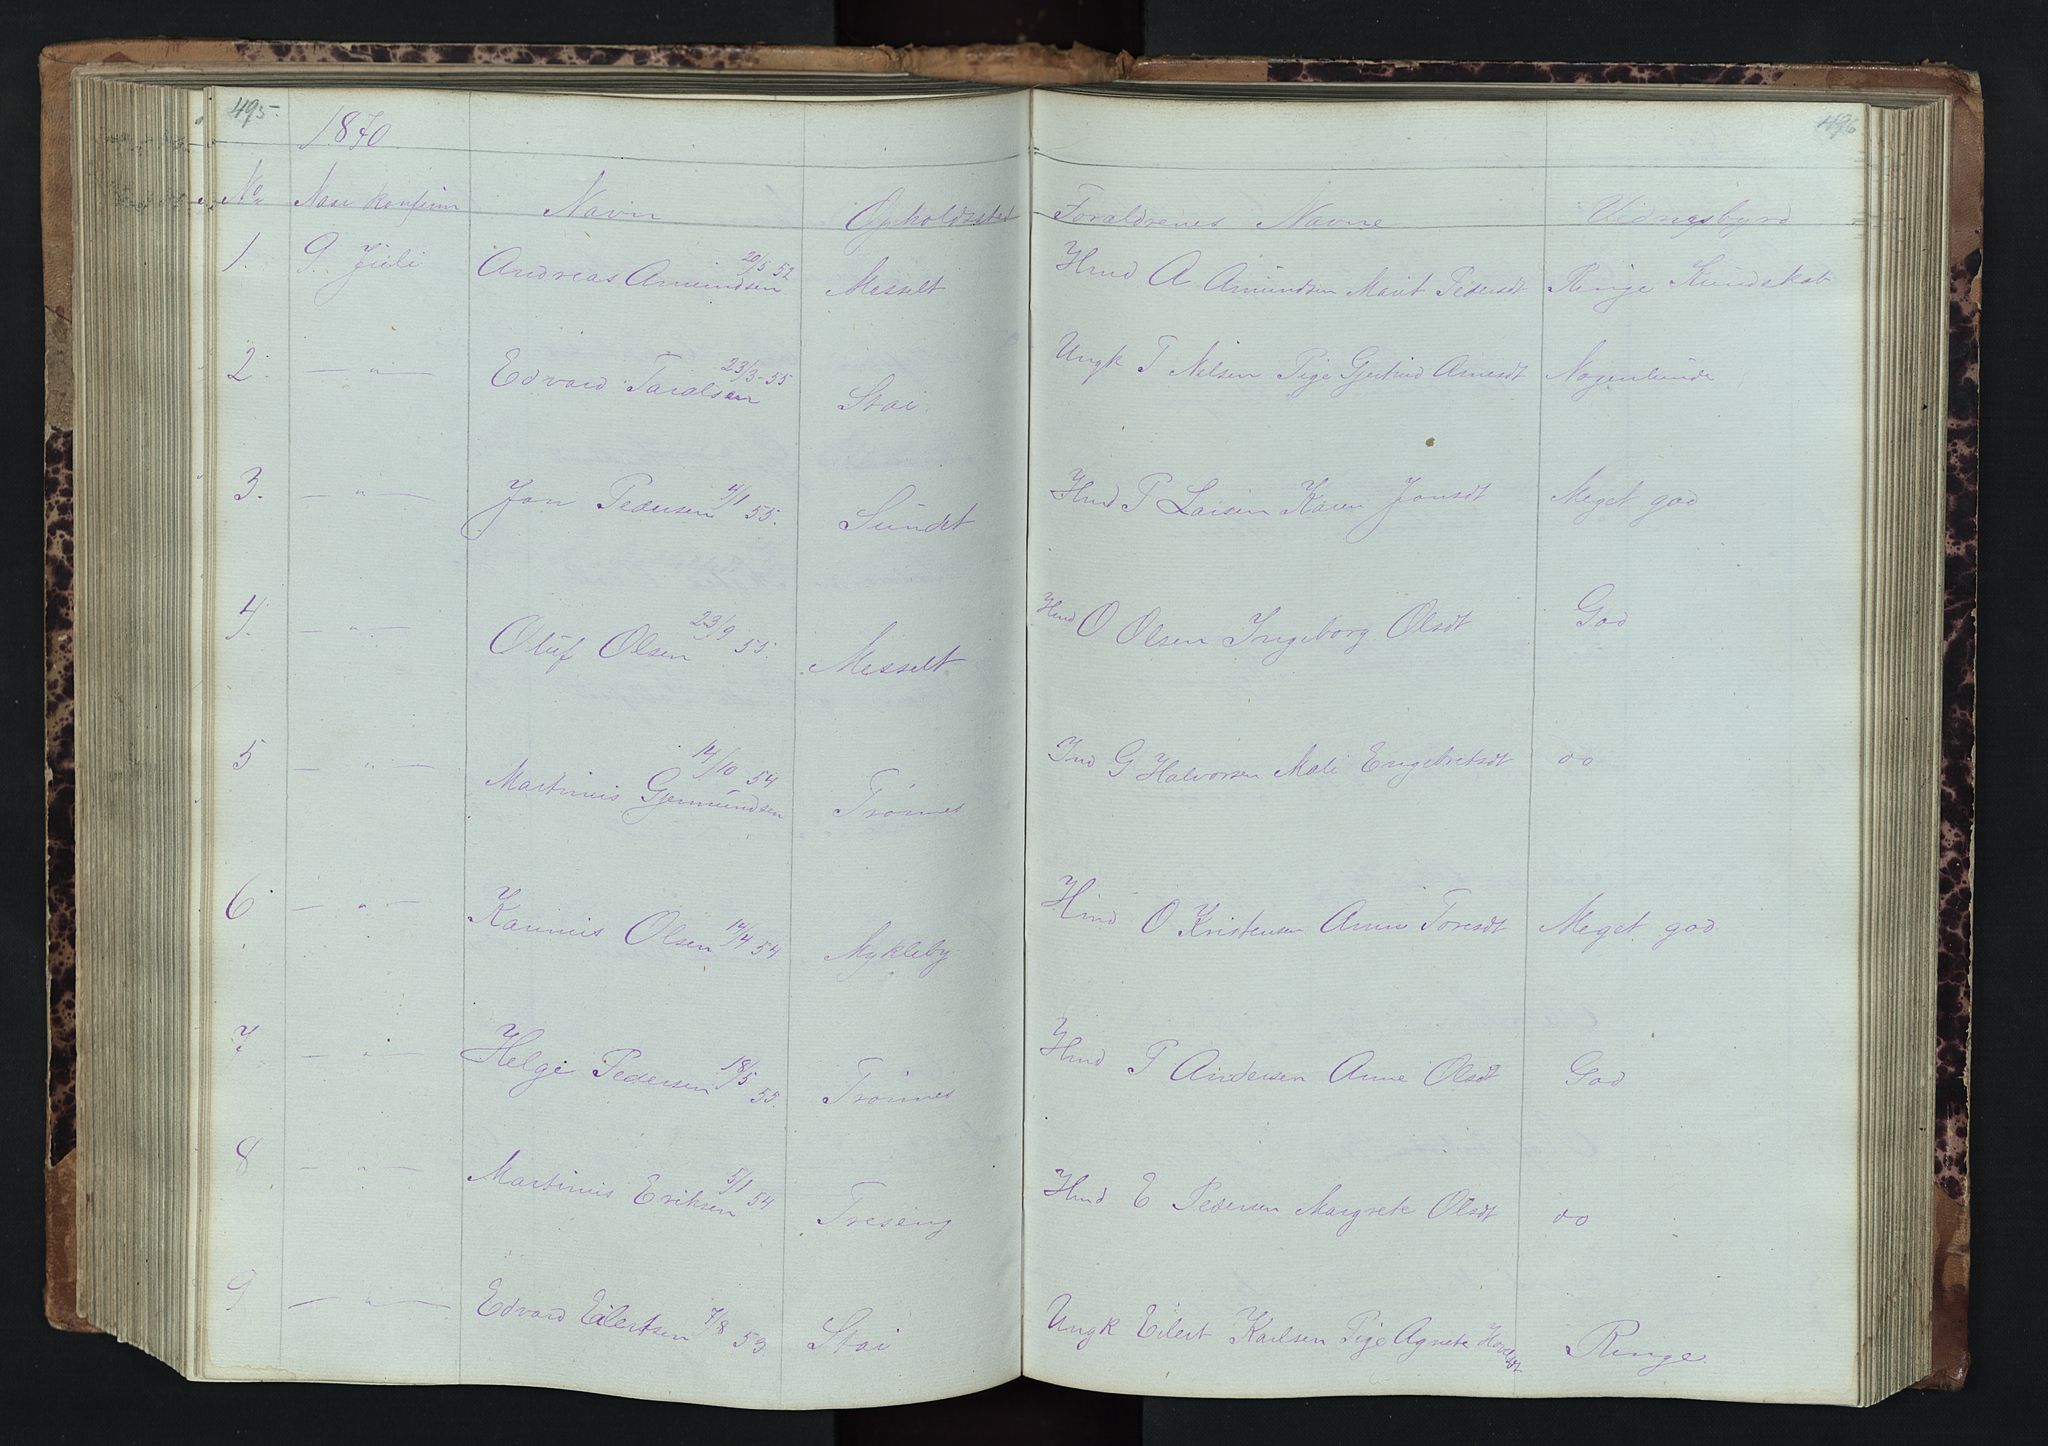 495. 496
1870
No Naar konfirm Navn Opholdssted Forældrenes Navne Vidnesbyrd
1. 9. Juli Andreas Amundsen 20/5 52 Messelt Hmd A Amundsen Marit Pedersdt Ringe Kundskab
2. — " — Edvard Taralsen 23/3-55 Stai Ungk T Nilsen Pige Gjertrud Arnesdt Nogenlunde
3. — " — Jon Pedersen 4/1 55. Sundet Hmd P Larsen Karen Jonsdt Meget god
4. — " — Oluf Olsen 23/9 55. Messelt Hmd O Olsen Ingeborg Olsdt God
5 — " — Martinus Gjermundsen 14/10 54 Trønnes Ind G Halvorsen Mali Engebretsdt do
6 — " — Karinus Olsen 14/4 54 Mykleby Hmd O Kristensen Anne Toresdt Meget god
7. — " — Helge Pedersen 18/5 55. Trønnes Hmd P Andersen Anne Olsdt God
8 — " — Martinus Eriksen 5/1 54 Treseng Hmd E Pedersen Margrete Olsdt do
9 — " — Edvard Eilertsen 7/8 53 Stai Ungk Eilert Karlsen Pige Agnete Ringe.